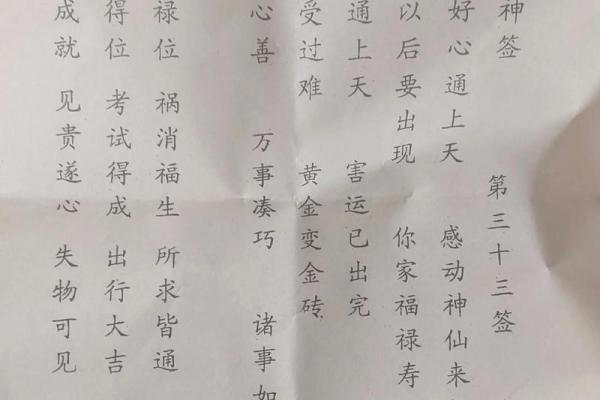 神签
第三十三签
好心通上天 感动神仙来
以后要出现 你家福禄寿
通上天 害运已出完
受过难 黄金变金砖
心善 万事凑巧 诸事如
禄位 祸消福生 所求皆通
得位 考试得成 出行大吉
成就 见贵遂心 失物可见